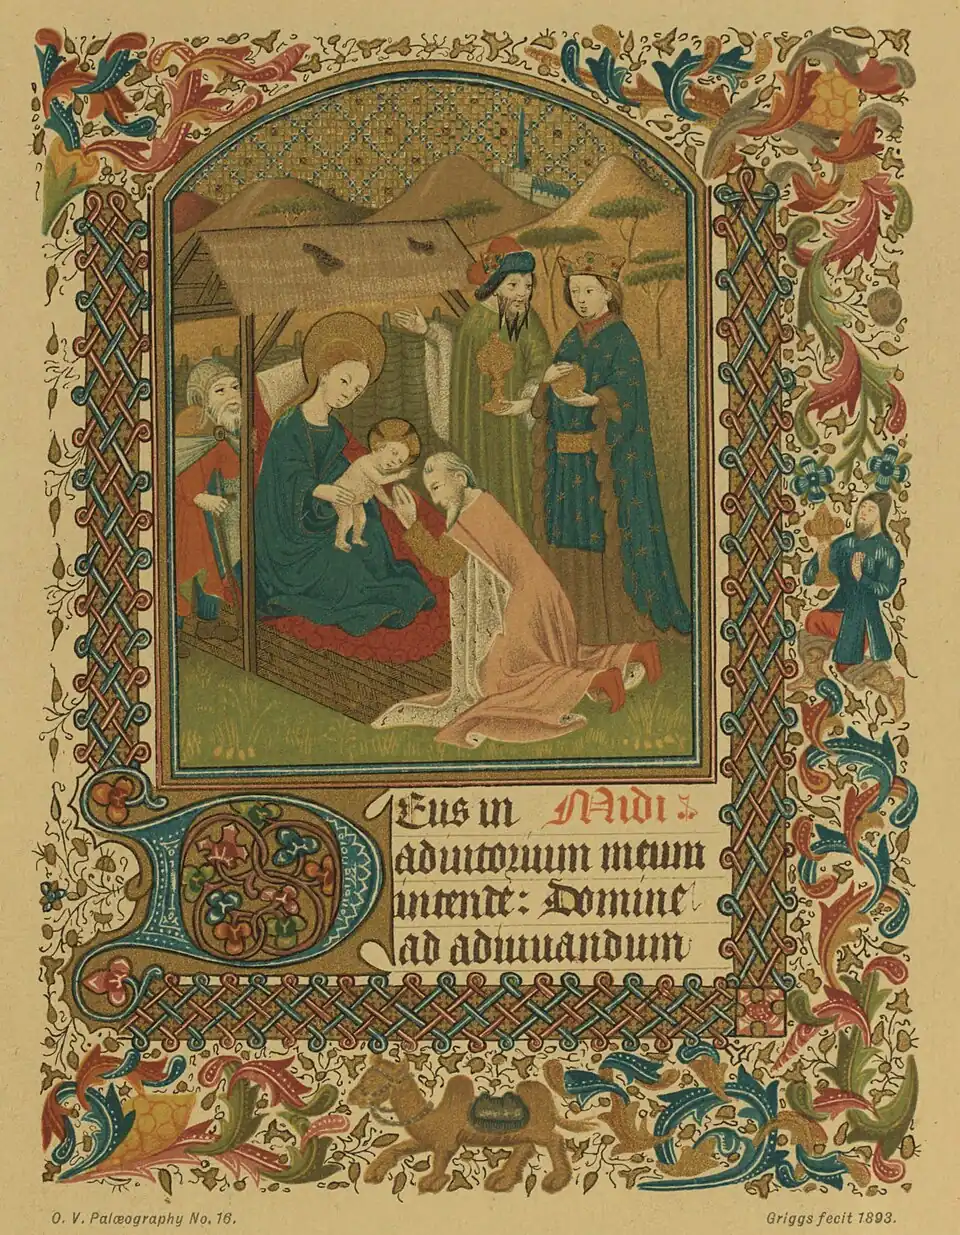 Deus in Midi
adiutorium meum
intende: Domine
ad adiuuandum
O. V. Palæography No. 16.
Griggs fecit 1893.